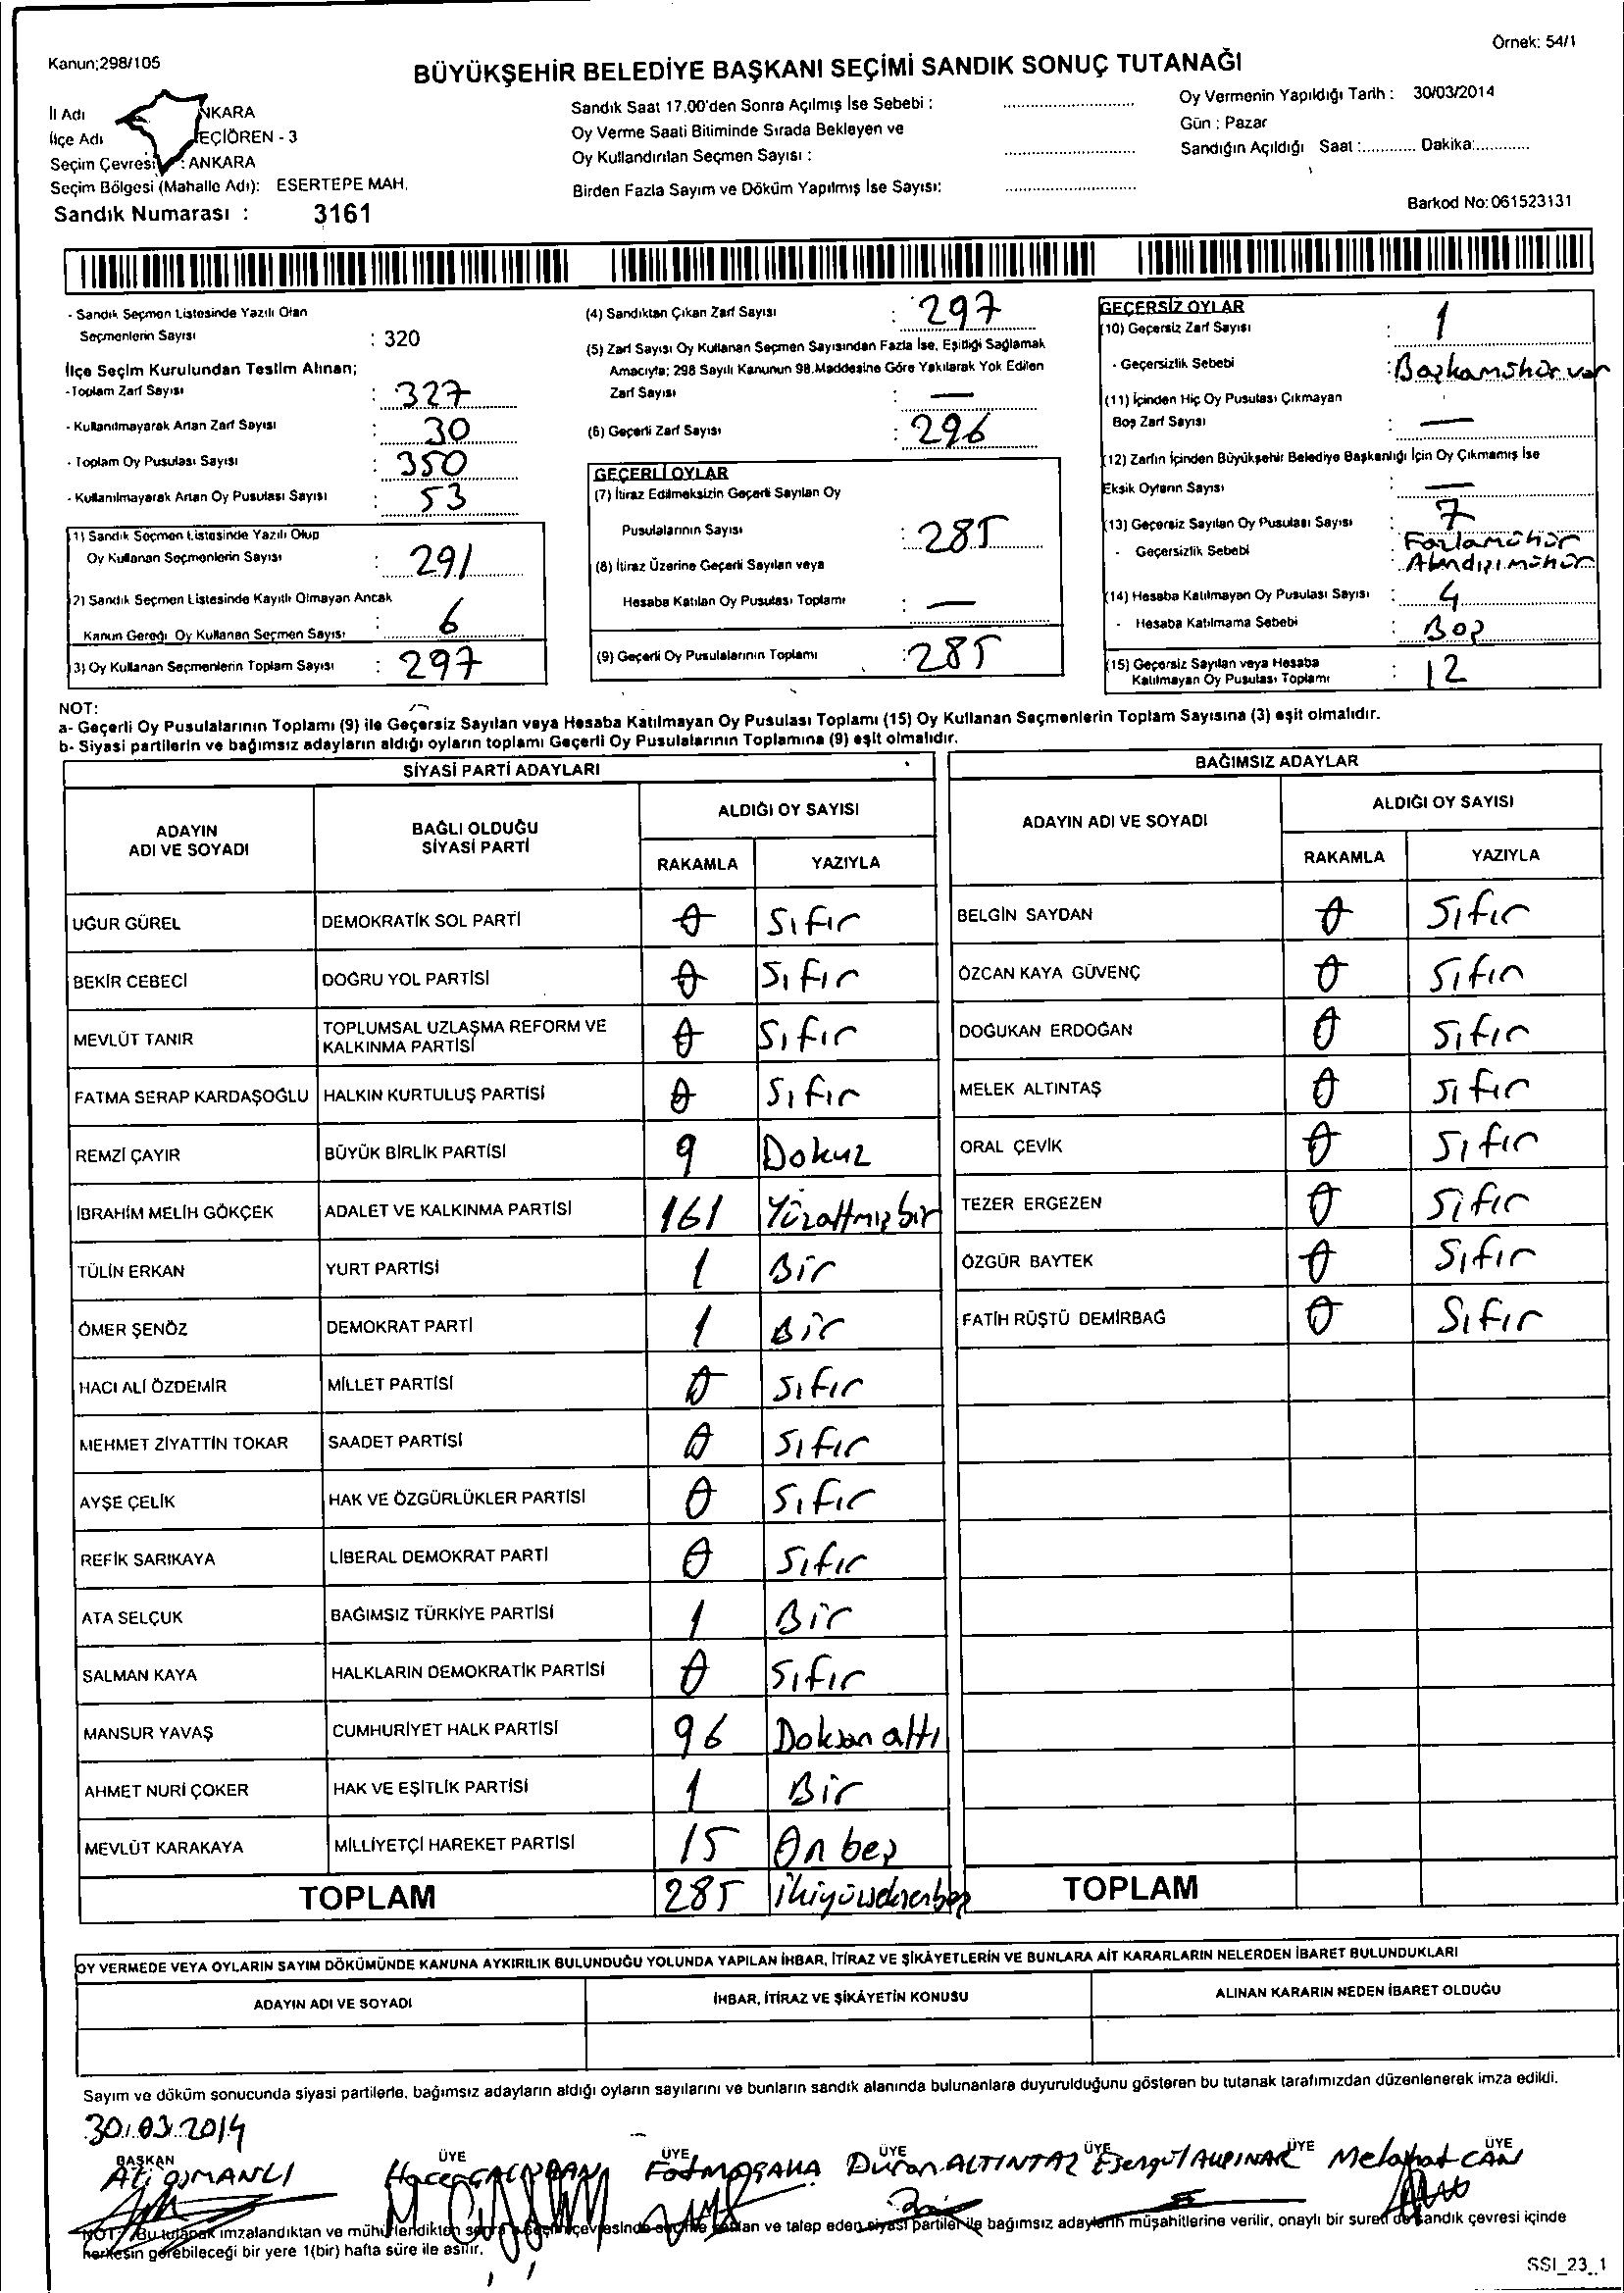 Kanun;298/105
Örnek: 54/1
BÜYÜKŞEHİR BELEDİYE BAŞKANI SEÇİMİ SANDIK SONUÇ TUTANAĞI
İl Adı NKARA
İlçe Adı EÇİÖREN - 3
Seçim Çevresi : ANKARA
Seçim Bölgesi (Mahalle Adı): ESERTEPE MAH.
Sandık Numarası : 3161
Sandık Saat 17.00'den Sonra Açılmış İse Sebebi :
Oy Verme Saati Bitiminde Sırada Bekleyen ve
Oy Kullandırılan Seçmen Sayısı :
Birden Fazla Sayım ve Döküm Yapılmış İse Sayısı:
Oy Vermenin Yapıldığı Tarih : 30/03/2014
Gün : Pazar
Sandığın Açıldığı Saat :............ Dakika:...........
Barkod No:061523131
- Sandık Seçmen Listesinde Yazılı Olan
Seçmenlerin Sayısı : 320
İlçe Seçim Kurulundan Teslim Alınan;
-Toplam Zarf Sayısı : 327
- Kullanılmayarak Artan Zarf Sayısı : 30
- Toplam Oy Pusulası Sayısı : 350
- Kullanılmayarak Artan Oy Pusulası Sayısı : 53
(1) Sandık Seçmen Listesinde Yazılı Olup
Oy Kullanan Seçmenlerin Sayısı : 291
(2) Sandık Seçmen Listesinde Kayıtlı Olmayan Ancak
Kanun Gereği Oy Kullanan Seçmen Sayısı : 6
(3) Oy Kullanan Seçmenlerin Toplam Sayısı : 297
(4) Sandıktan Çıkan Zarf Sayısı : 297
(5) Zarf Sayısı Oy Kullanan Seçmen Sayısından Fazla İse, Eşitliği Sağlamak
Amacıyla; 298 Sayılı Kanunun 98.Maddesine Göre Yakılarak Yok Edilen
Zarf Sayısı : —
(6) Geçerli Zarf Sayısı : 296
GEÇERLİ OYLAR
(7) İtiraz Edilmeksizin Geçerli Sayılan Oy
Pusulalarının Sayısı : 285
(8) İtiraz Üzerine Geçerli Sayılan veya
Hesaba Katılan Oy Pusulası Toplamı : —
(9) Geçerli Oy Pusulalarının Toplamı : 285
GEÇERSİZ OYLAR
(10) Geçersiz Zarf Sayısı : 1
- Geçersizlik Sebebi : Başkamühür var
(11) İçinden Hiç Oy Pusulası Çıkmayan
Boş Zarf Sayısı : —
(12) Zarfın İçinden Büyükşehir Belediye Başkanlığı İçin Oy Çıkmamış İse
Eksik Oyların Sayısı : —
(13) Geçersiz Sayılan Oy Pusulası Sayısı : 7
- Geçersizlik Sebebi : Fazlamühür
Alandışı mühür
(14) Hesaba Katılmayan Oy Pusulası Sayısı : 4
- Hesaba Katılmama Sebebi : Boş
(15) Geçersiz Sayılan veya Hesaba
Katılmayan Oy Pusulası Toplamı : 12
NOT:
a- Geçerli Oy Pusulalarının Toplamı (9) ile Geçersiz Sayılan veya Hesaba Katılmayan Oy Pusulası Toplamı (15) Oy Kullanan Seçmenlerin Toplam Sayısına (3) eşit olmalıdır.
b- Siyasi partilerin ve bağımsız adayların aldığı oyların toplamı Geçerli Oy Pusulalarının Toplamına (9) eşit olmalıdır.
SİYASİ PARTİ ADAYLARI
ADAYIN ADI VE SOYADI BAĞLI OLDUĞU SİYASİ PARTİ ALDIĞI OY SAYISI
RAKAMLA YAZIYLA
UĞUR GÜREL DEMOKRATİK SOL PARTİ 0 Sıfır
BEKİR CEBECİ DOĞRU YOL PARTİSİ 0 Sıfır
MEVLÜT TANIR TOPLUMSAL UZLAŞMA REFORM VE KALKINMA PARTİSİ 0 Sıfır
FATMA SERAP KARDAŞOĞLU HALKIN KURTULUŞ PARTİSİ 0 Sıfır
REMZİ ÇAYIR BÜYÜK BİRLİK PARTİSİ 9 Dokuz
İBRAHİM MELİH GÖKÇEK ADALET VE KALKINMA PARTİSİ 161 Yüzaltmışbir
TÜLİN ERKAN YURT PARTİSİ 1 Bir
ÖMER ŞENÖZ DEMOKRAT PARTİ 1 Bir
HACI ALİ ÖZDEMİR MİLLET PARTİSİ 0 Sıfır
MEHMET ZİYATTİN TOKAR SAADET PARTİSİ 0 Sıfır
AYŞE ÇELİK HAK VE ÖZGÜRLÜKLER PARTİSİ 0 Sıfır
REFİK SARIKAYA LİBERAL DEMOKRAT PARTİ 0 Sıfır
ATA SELÇUK BAĞIMSIZ TÜRKİYE PARTİSİ 1 Bir
SALMAN KAYA HALKLARIN DEMOKRATİK PARTİSİ 0 Sıfır
MANSUR YAVAŞ CUMHURİYET HALK PARTİSİ 96 Doksanaltı
AHMET NURİ ÇOKER HAK VE EŞİTLİK PARTİSİ 1 Bir
MEVLÜT KARAKAYA MİLLİYETÇİ HAREKET PARTİSİ 15 Onbeş
TOPLAM 285 ikiyüzseksenbeş
BAĞIMSIZ ADAYLAR
ADAYIN ADI VE SOYADI ALDIĞI OY SAYISI
RAKAMLA YAZIYLA
BELGİN SAYDAN 0 Sıfır
ÖZCAN KAYA GÜVENÇ 0 Sıfır
DOĞUKAN ERDOĞAN 0 Sıfır
MELEK ALTINTAŞ 0 Sıfır
ORAL ÇEVİK 0 Sıfır
TEZER ERGEZEN 0 Sıfır
ÖZGÜR BAYTEK 0 Sıfır
FATİH RÜŞTÜ DEMİRBAĞ 0 Sıfır
TOPLAM
OY VERMEDE VEYA OYLARIN SAYIM DÖKÜMÜNDE KANUNA AYKIRILIK BULUNDUĞU YOLUNDA YAPILAN İHBAR, İTİRAZ VE ŞİKÂYETLERİN VE BUNLARA AİT KARARLARIN NELERDEN İBARET BULUNDUKLARI
ADAYIN ADI VE SOYADI İHBAR, İTİRAZ VE ŞİKÂYETİN KONUSU ALINAN KARARIN NEDEN İBARET OLDUĞU
Sayım ve döküm sonucunda siyasi partilerle, bağımsız adayların aldığı oyların sayılarını ve bunların sandık alanında bulunanlara duyurulduğunu gösteren bu tutanak tarafımızdan düzenlenerek imza edildi.
30.03.2014
BAŞKAN ÜYE ÜYE ÜYE ÜYE ÜYE ÜYE
Ali OSMANLI Hacer Duran ALTINTAŞ Melahat CAN
NOT: Bu tutanak imzalandıktan ve mühürlendikten sonra o seçim çevresinde seçime katılan ve talep eden siyasi partiler ile bağımsız adayların müşahitlerine verilir, onaylı bir sureti de sandık çevresi içinde
herkesin görebileceği bir yere 1(bir) hafta süre ile asılır.
SSI_23_1